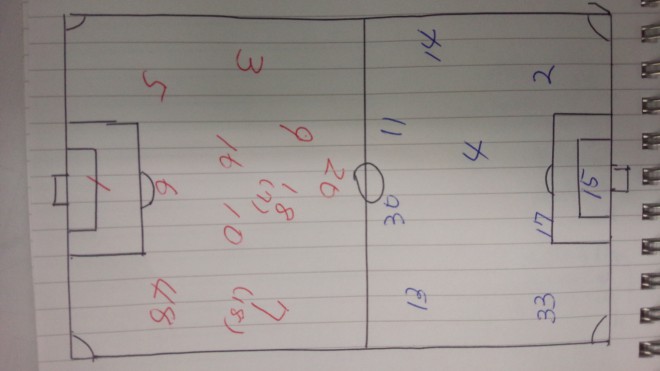 3
5
9
16
26
18
(7)
1
6
10
7
(18)
48
14
2
11
4
15
30
17
13
33